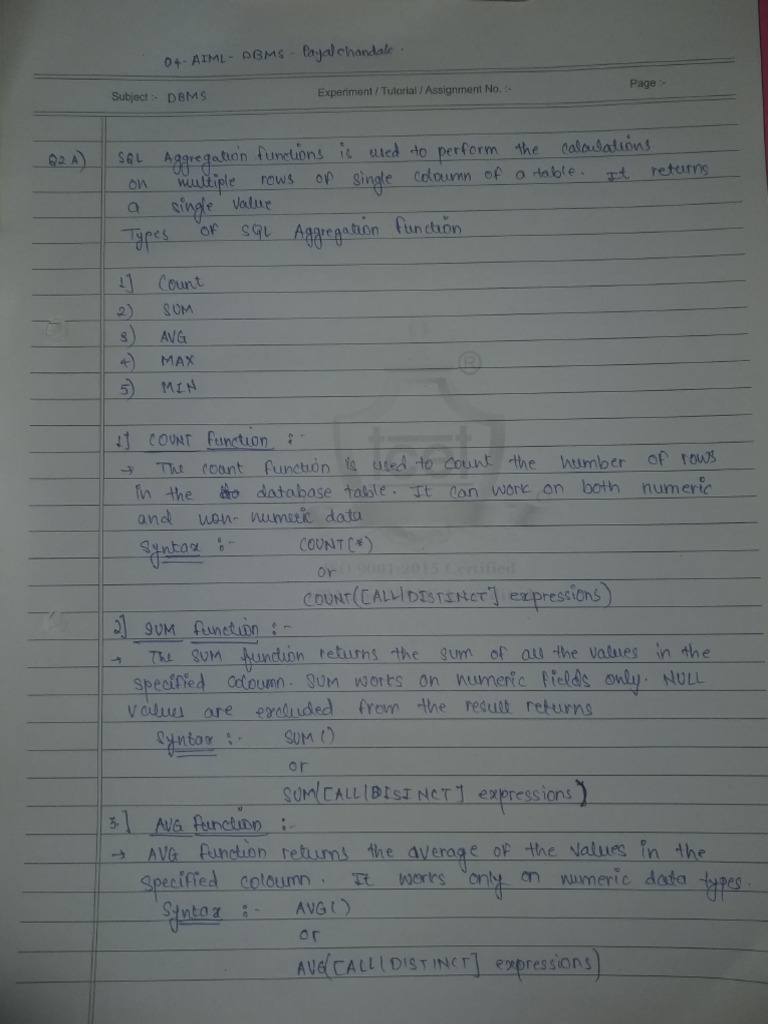 04- AIML- DBMS - Payal chandale.
Subject :- DBMS Experiment / Tutorial / Assignment No. :- Page :-
Q2 A) SQL Aggregation functions is used to perform the calculations
on multiple rows of single coloumn of a table. It returns
a single value
Types of SQL Aggregation function
1] Count
2) SUM
3) AVG
4) MAX
5) MIN
®
tcet
1] COUNT function :-
→ The count function is used to count the number of rows
in the database table. It can work on both numeric
and non-numeric data
Syntax :- COUNT(*)
ISO 9001:2015 Certified
or
COUNT([ALL|DISTINCT] expressions)
2] SUM function :-
→ The SUM function returns the sum of all the values in the
specified coloumn. SUM works on numeric fields only. NULL
values are excluded from the result returns
Syntax :- SUM()
or
SUM([ALL|DISINCT] expressions)
3.] AVG function :-
→ AVG function returns the average of the values in the
specified coloumn. It works only on numeric data types.
Syntax :- AVG()
or
AVG([ALL|DISTINCT] expressions)